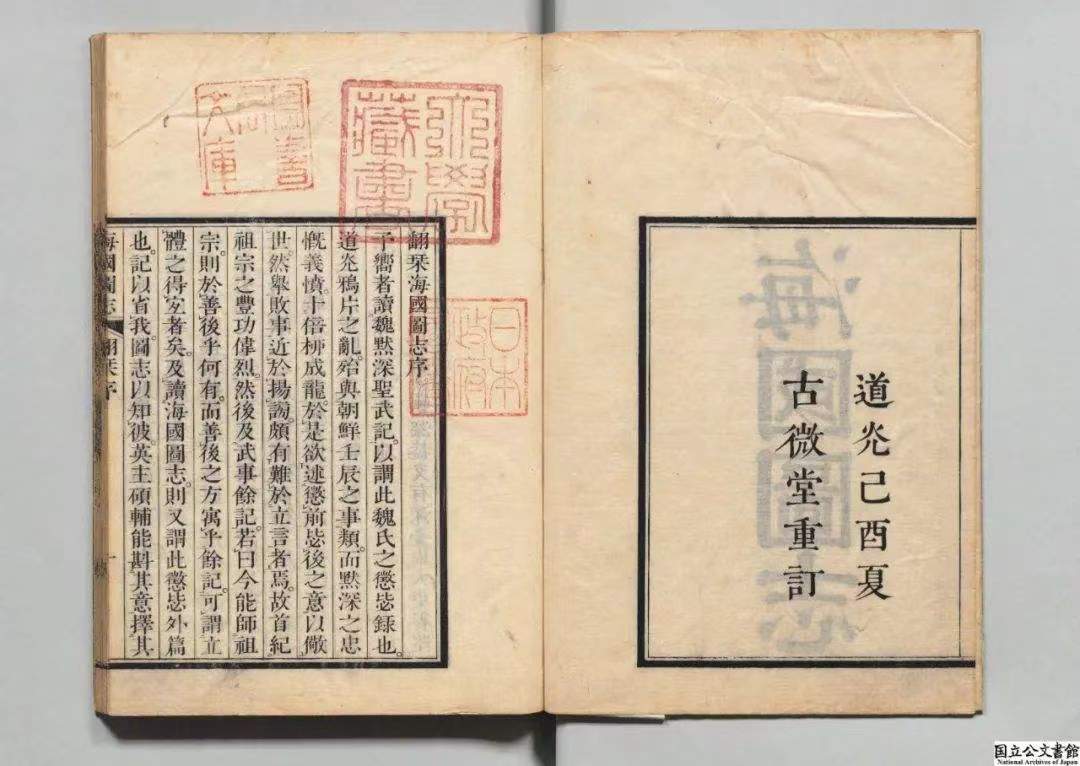 道光己酉夏
古微堂重訂
海國圖志
大學藏書
圖書局文庫
日本政府
翻栞海國圖志序
予嚮者讀魏默深聖武記。以謂此魏氏之懲毖録也。
道光鴉片之亂。殆與朝鮮壬辰之事類。而默深之忠
慨義憤。十倍柳成龍。於是欲述懲前毖後之意以儆
世。然舉敗事近於揚謁。頗有難於立言者焉。故首紀
祖宗之豐功偉烈。然後及武事餘記。若曰今能師祖
宗。則於善後乎何有。而善後之方寓乎餘記。可謂立
體之得宜者矣。及讀海國圖志。則又謂此懲毖外篇
也。記以省我。圖志以知彼。英主碩輔能斟其意擇其
海國圖志 翻栞序 一
国立公文書館
National Archives of Japan